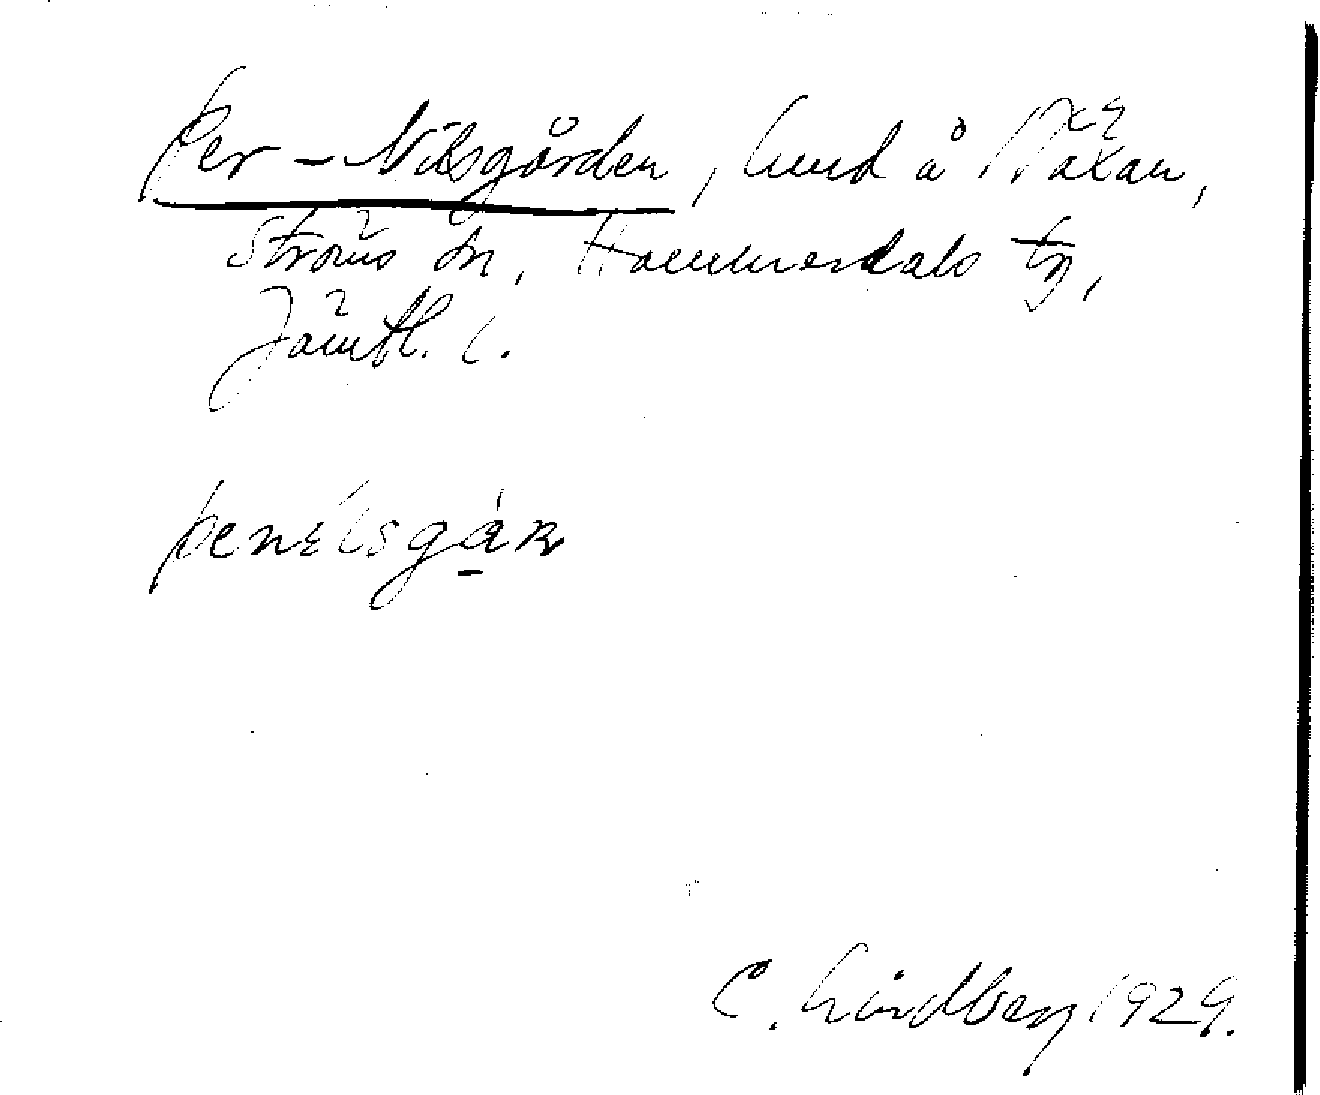 Per-Nilsgården, hmd å
Ströms sn, Hammerdals tg,
Jämtl. l.
penélsgár
C. Lindberg 1929.